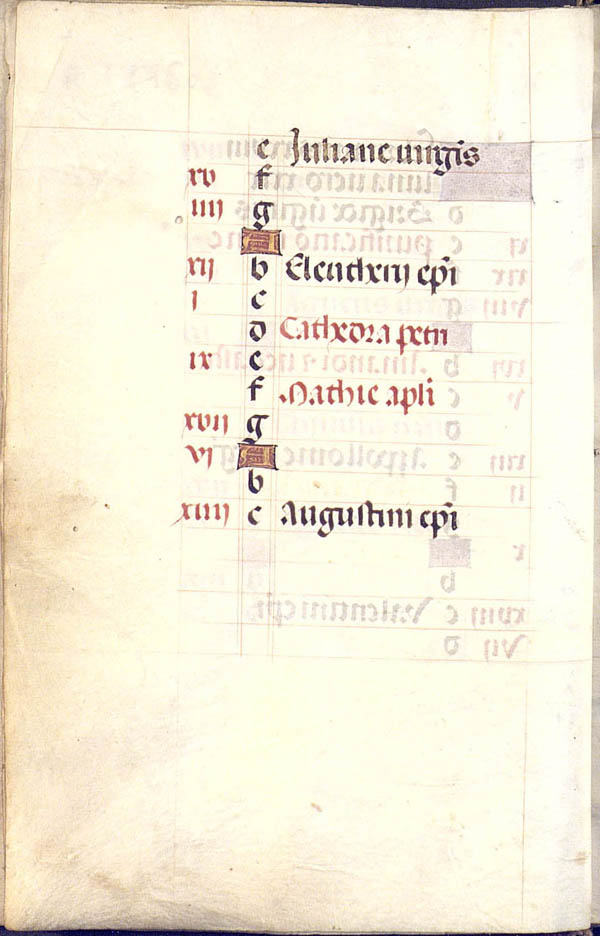 e Juliane uirgis
xv f
iiii g
A
xij b Eleutherij epi
j c
d Cathedra petri
ix e
f Mathie apli
xvij g
vj A
b
xiiij c Augustini epi